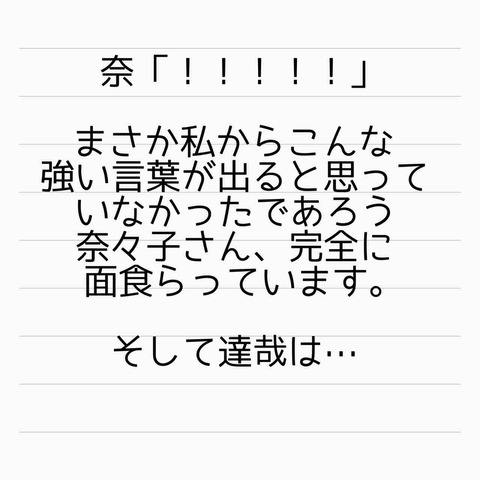 奈「！！！！！」
まさか私からこんな
強い言葉が出ると思って
いなかったであろう
奈々子さん、完全に
面食らっています。
そして達哉は…